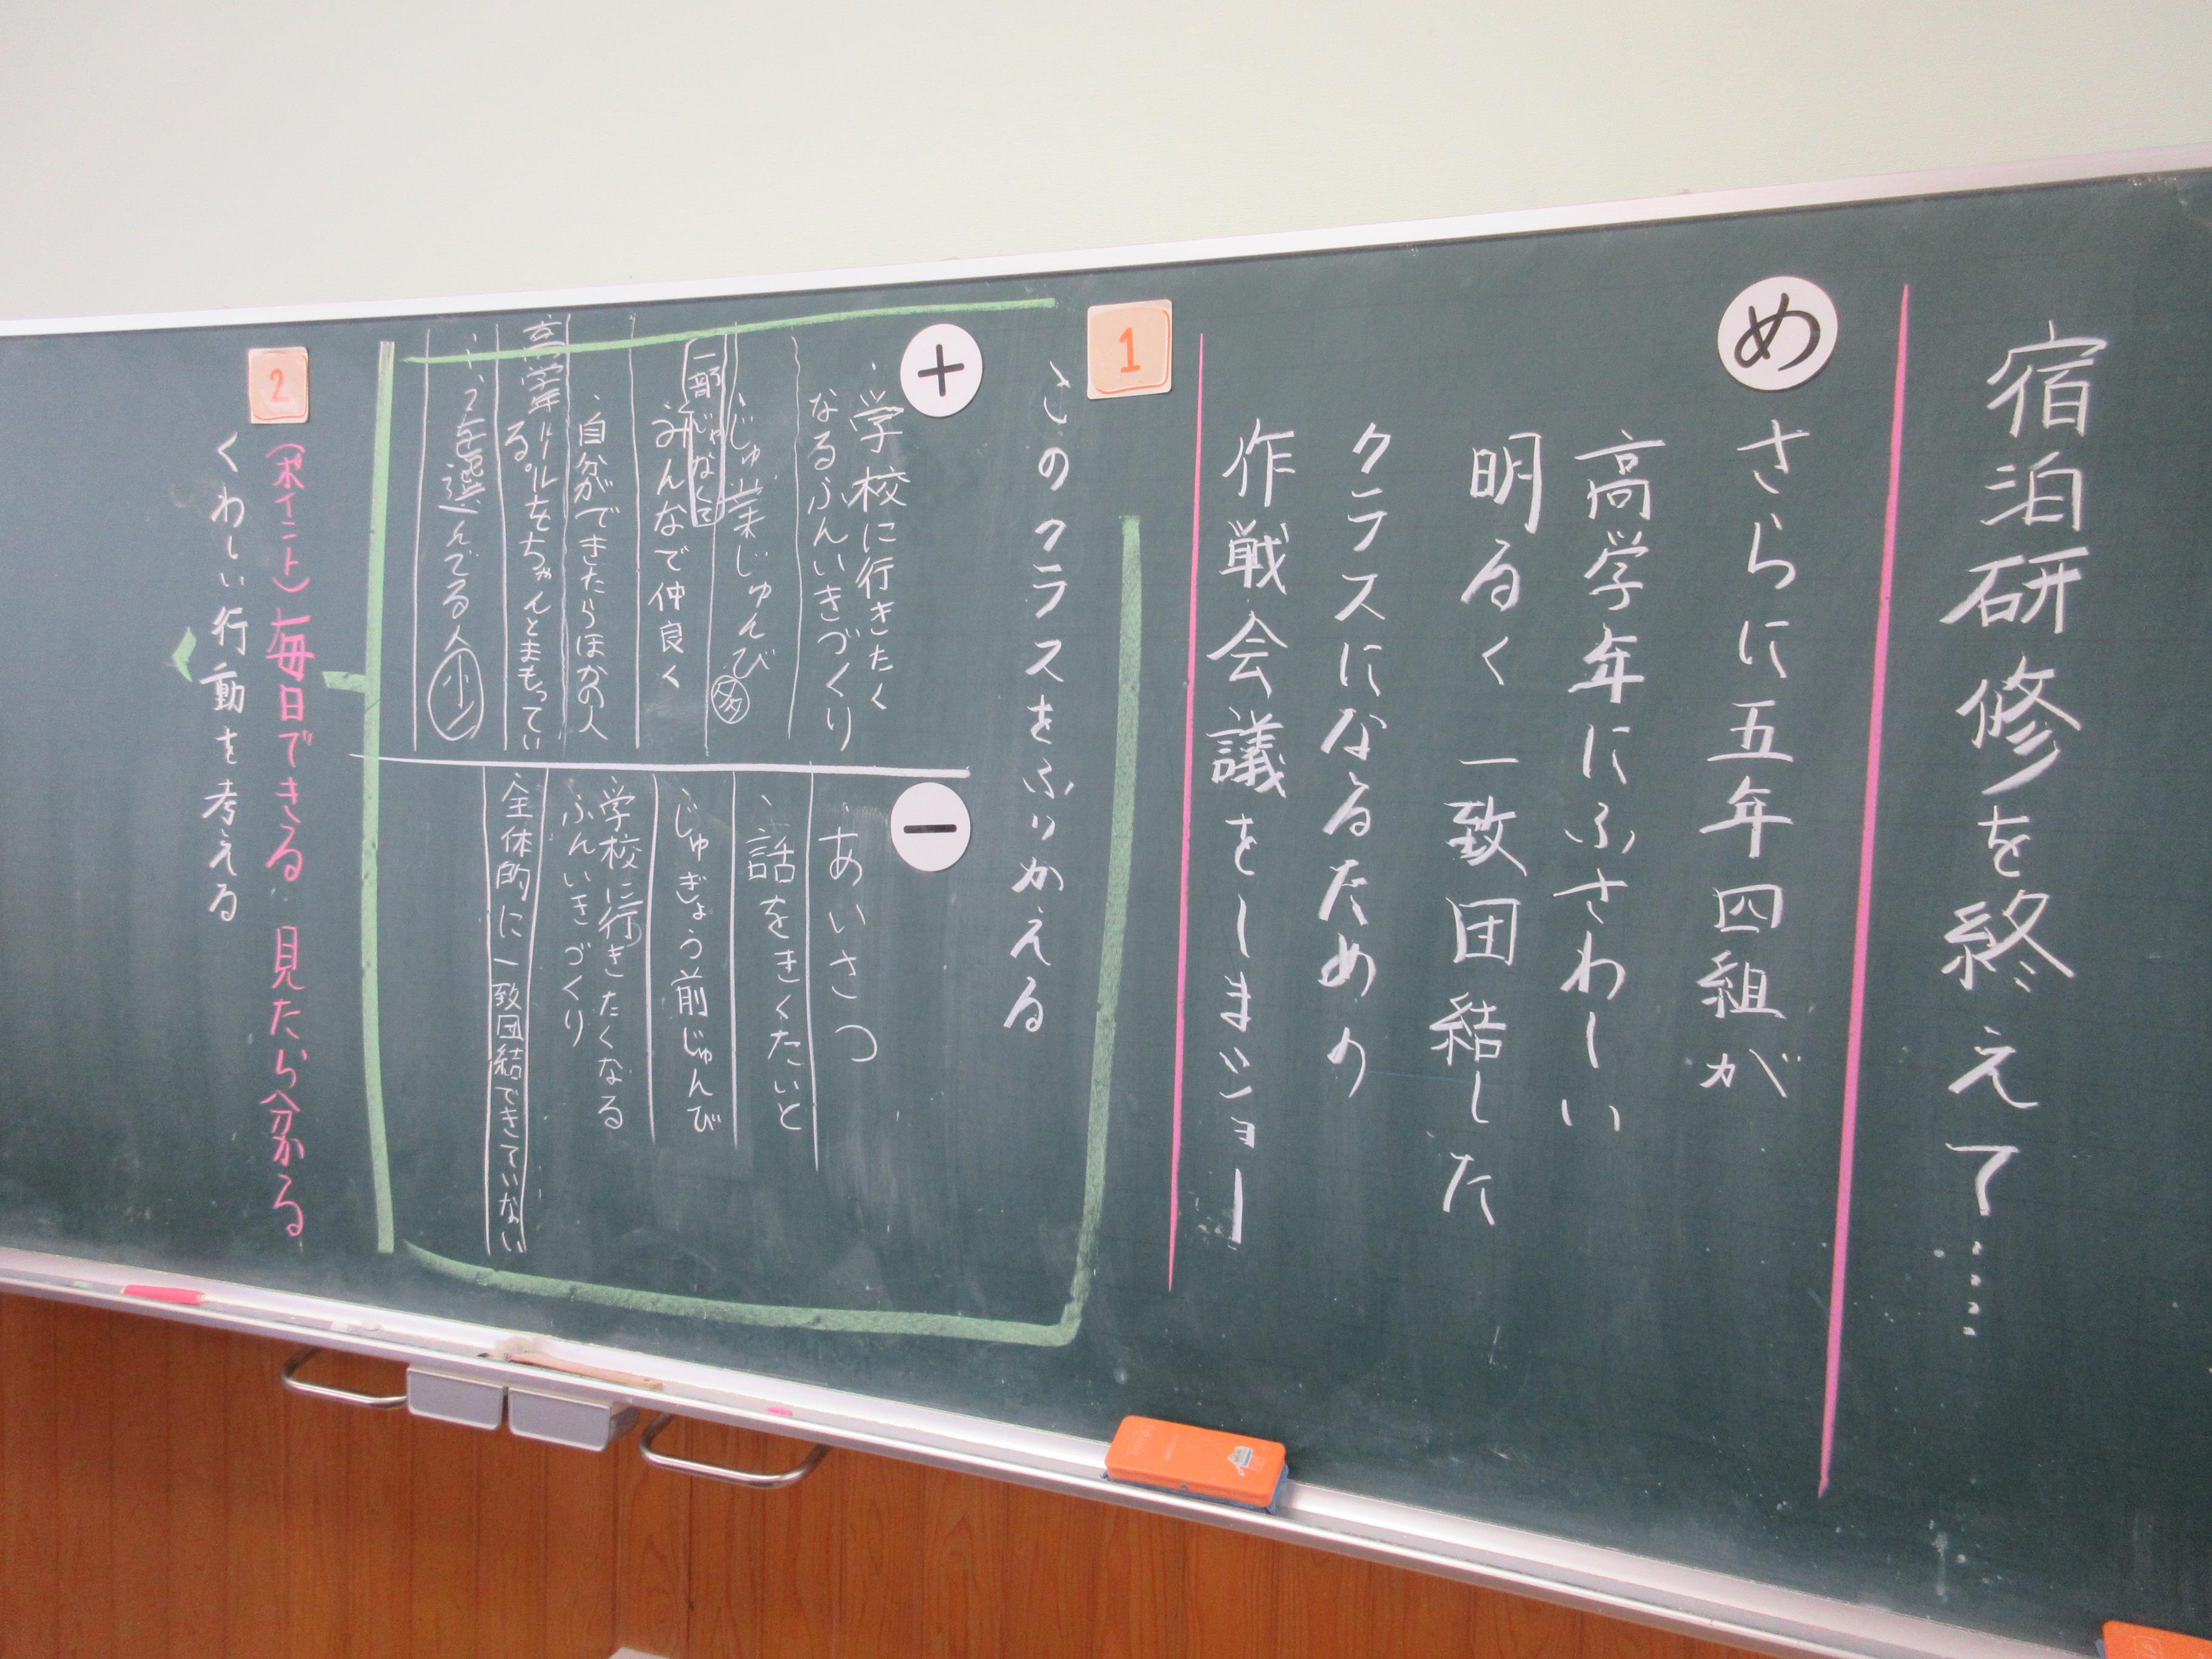 宿泊研修を終えて……
め
さらに五年四組が
高学年にふさわしい
明るく一致団結した
クラスになるための
作戦会議をしまショー
1
このクラスをふりかえる
+
・学校に行きたく
なるふんいきづくり
・じゅ業じゅんび 多
一部じゃなくて
みんなで仲良く
・自分ができたらほかの人
高学年
ルールをちゃんとまもってい
る。
を選んでる人 少
−
・あいさつ
・話をきくたいど
・じゅぎょう前じゅんび
・学校に行きたくなる
ふんいきづくり
全体的に一致団結できていない
2
(ポイント)毎日できる 見たら分かる
くわしい行動を考える